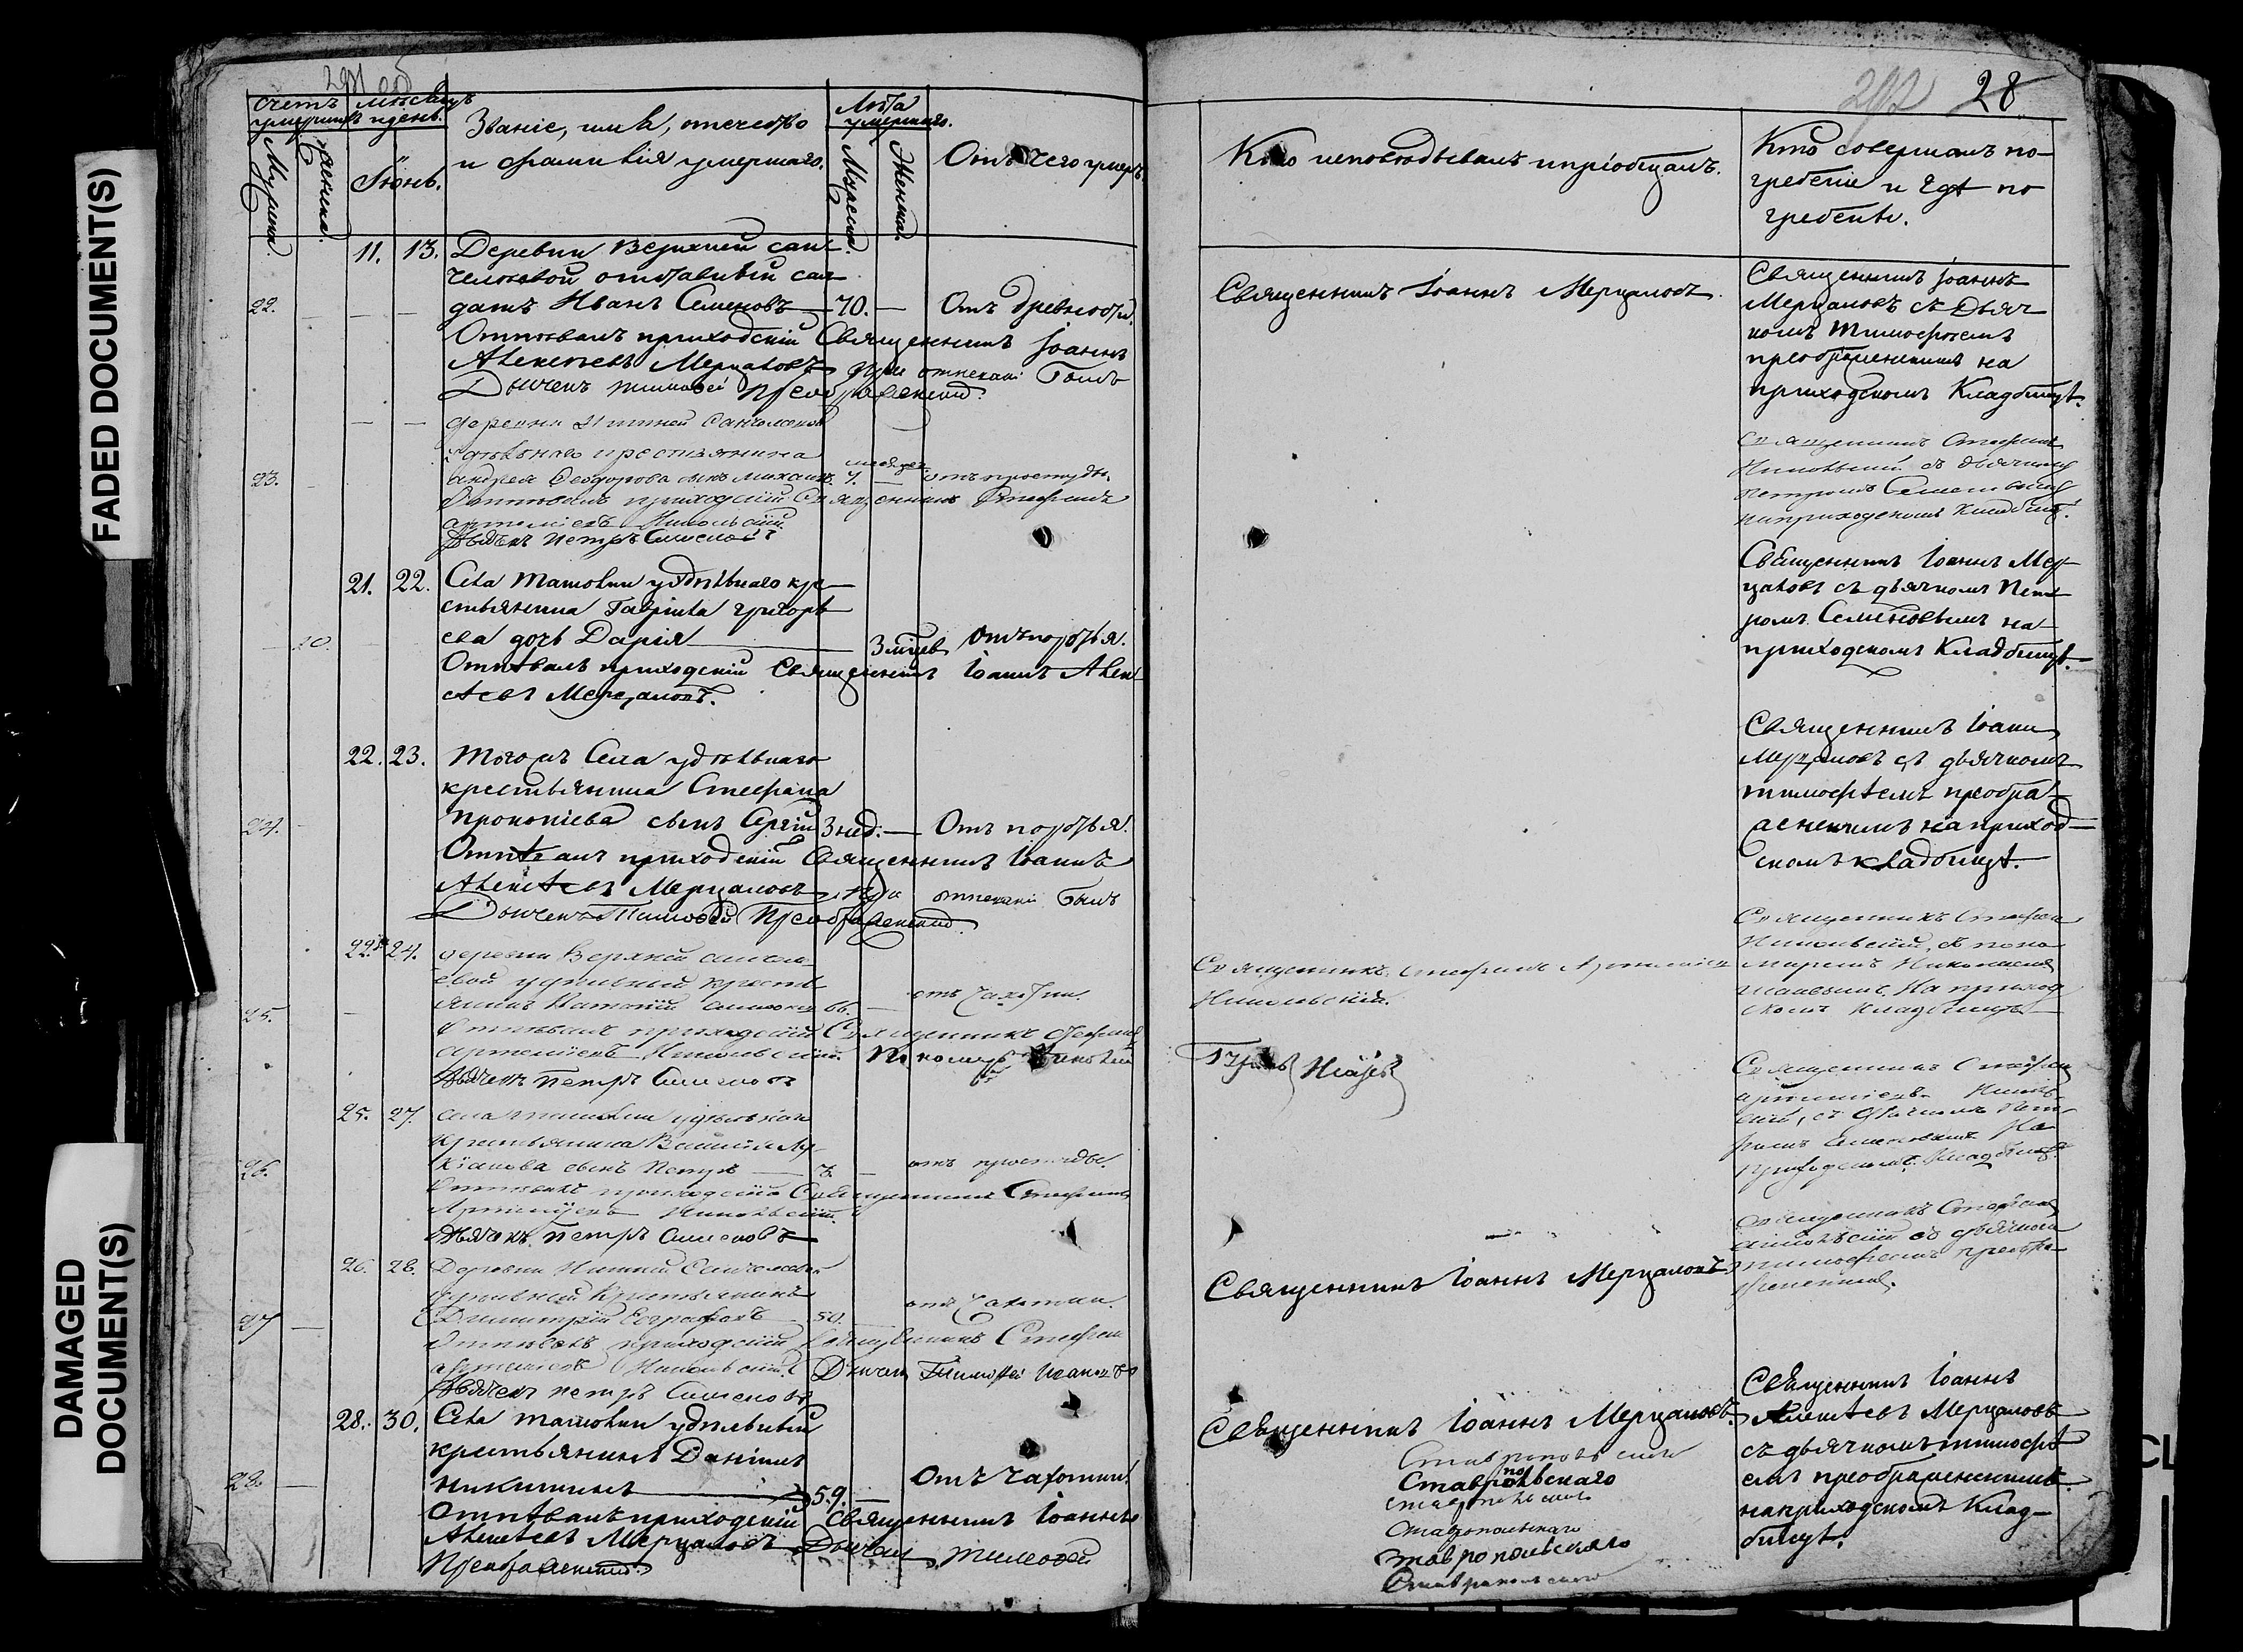 FADED DOCUMENT(S)
DAMAGED
DOCUMENT(S)
291 об
Счетъ умершихъ
Мужеска
Женска.
Месяцъ и день.
Іюнь.
Званіе, имя, отечество
и фамилія умершаго.
Лѣта умершаго.
Мужеска
Женска.
Отъ чего умеръ.
22.
11. 13. Деревни Верхней Сан-
челеевой отставный сол-
датъ Иванъ Семеновъ — 70. — Отъ древности.
Отпѣвалъ приходскій Священникъ Іоаннъ
Алексѣевъ Мерцаловъ при отпеваніи былъ
Дьячекъ Тимофей Преображенскій.
23.
деревни Нижней Санчелеевой
удѣльнаго крестьянина
Андрея Феодорова сынъ Михаилъ месяцев отъ простуды.
Отпѣвалъ приходскій Священникъ Стефанъ
Артеміевъ Никольскій.
Дьячекъ Петръ Семеновъ
10.
21. 22. Села Ташовки удѣльнаго кре-
стьянина Гавріила Григорь-
ева дочь Дарія — 3 мѣсяцев Отъ породья.
Отпѣвалъ приходскій Священникъ Іоаннъ Алек-
сѣевъ Мерцаловъ.
24.
22. 23. Того жъ Села удѣльнаго
крестьянина Стефана
Прокопіева сынъ Сергій 3 нед. — Отъ породья.
Отпѣвалъ приходскій Священникъ Іоаннъ
Алексѣевъ Мерцаловъ При отпеваніи былъ
Дьячекъ Тимофей Преображенскій.
25.
22. 24. деревни Верхней Санчеле-
евой удѣльный кресть-
янинъ 66. — отъ чахотки.
Отпѣвалъ приходскій Священникъ Стефанъ
Артеміевъ Никольскій. Пономарь
Дьячекъ Петръ Семеновъ
26.
25. 27. села Ташовки удѣльнаго
крестьянина Василія Лу-
кіанова сынъ Петръ — 3. — отъ простуды.
Отпѣвалъ приходскій Священникъ Стефанъ
Артеміевъ Никольскій.
Дьячекъ Петръ Семеновъ
27
26. 28. Деревни Нижней Санчелеевой
удѣльный Крестьянинъ
Димитрій Евграфовъ 50. — отъ чахотки.
Отпѣвалъ приходскій Священникъ Стефанъ
Артеміевъ Никольскій. Дьячекъ Тимофей
Дьячекъ Петръ Семеновъ
28.
28. 30. Села Ташовки удѣльный
крестьянинъ Даніилъ
Никитинъ — 59. — Отъ чахотки.
Отпѣвалъ приходскій Священникъ Іоаннъ
Алексѣевъ Мерцаловъ Дьячекъ Тимофей
Преображенскій.
292 28
Кто исповѣдывалъ и пріобщалъ.
Кто совершалъ по-
гребеніе и гдѣ по
гребенъ.
Священникъ Іоаннъ Мерцаловъ.
Священникъ Іоаннъ
Мерцаловъ съ Дьяч-
комъ Тимофеемъ
преображенскимъ на
приходскомъ Кладбищѣ.
Священникъ Стефанъ
Никольскій съ дьячкомъ
Петромъ Семеновымъ
на приходскомъ кладбищѣ.
Священникъ Іоаннъ Мер-
цаловъ съ дьячкомъ Пет-
ромъ Семеновымъ на
приходскомъ Кладбищѣ.
Священникъ Іоаннъ
Мерцаловъ съ дьячкомъ
тимофеемъ преобра-
женскимъ на приход-
скомъ кладбищѣ.
Священникъ Стефанъ Артеміевъ
Никольскій.
Священникъ Стефанъ
Никольскій, съ поно-
маремъ Николаемъ
На приход-
скомъ кладбищѣ
Священникъ Стефанъ
Артеміевъ Николь-
скій, съ дьячкомъ Пет-
ромъ Семеновымъ На
приходскомъ Кладбищѣ.
Священникъ Іоаннъ Мерцаловъ
Священникъ Стефанъ
Никольскій съ дьячкомъ
тимофеемъ преобра-
женскимъ.
Священникъ Іоаннъ Мерцаловъ.
Священникъ Іоаннъ
Алексѣевъ Мерцаловъ
съ дьячкомъ тимофе-
емъ преображенскимъ
на приходскомъ Клад-
бищѣ.
Ставропольскаго
Ставропольскаго
Ставропольскаго
Ставропольскаго